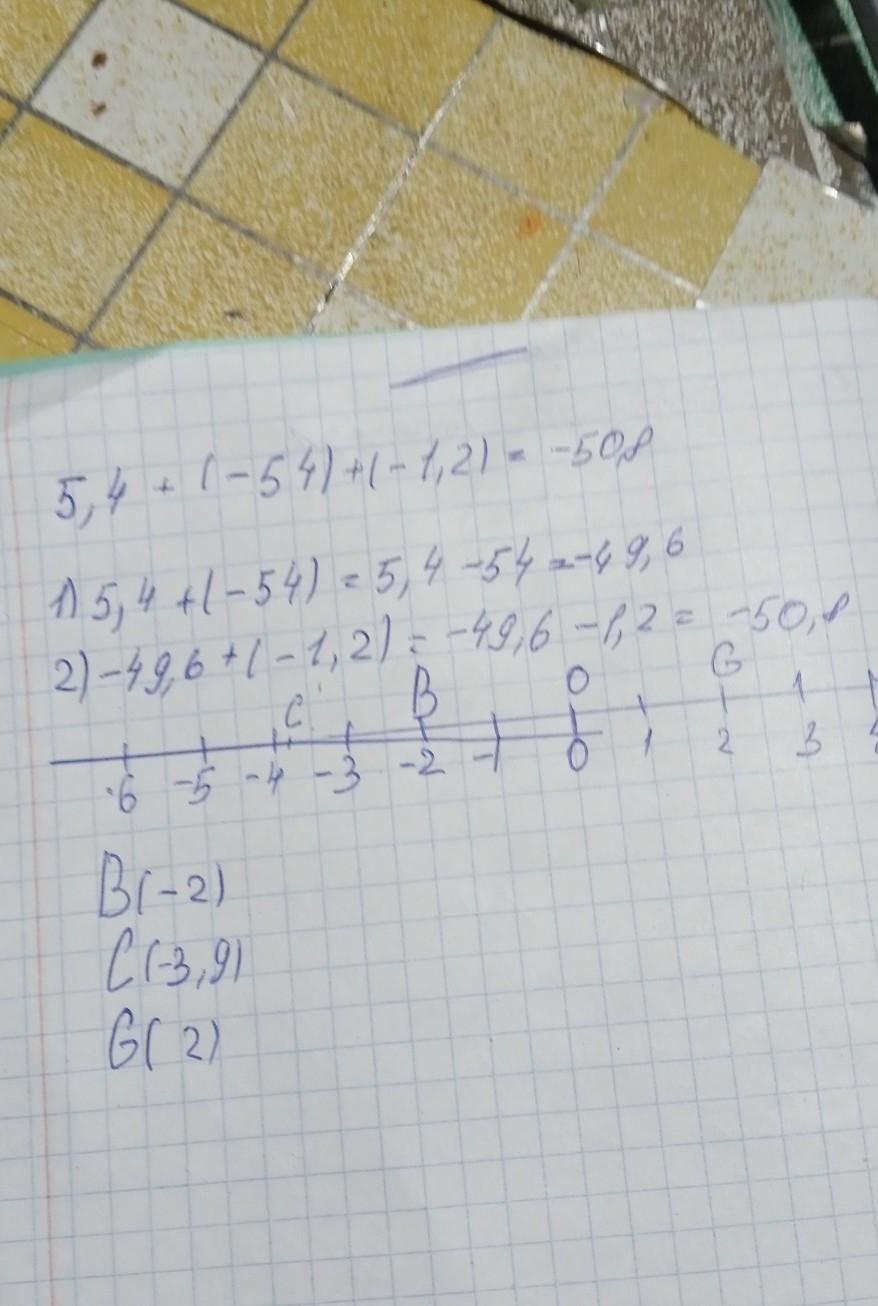 5,4 + (-54) + (-1,2) = -50,8
1) 5,4 + (-54) = 5,4 - 54 = -49,6
2) -49,6 + (-1,2) = -49,6 - 1,2 = -50,8
C B O G
-6 -5 -4 -3 -2 -1 0 1 2 3 4
B(-2)
C(-3,9)
G(2)